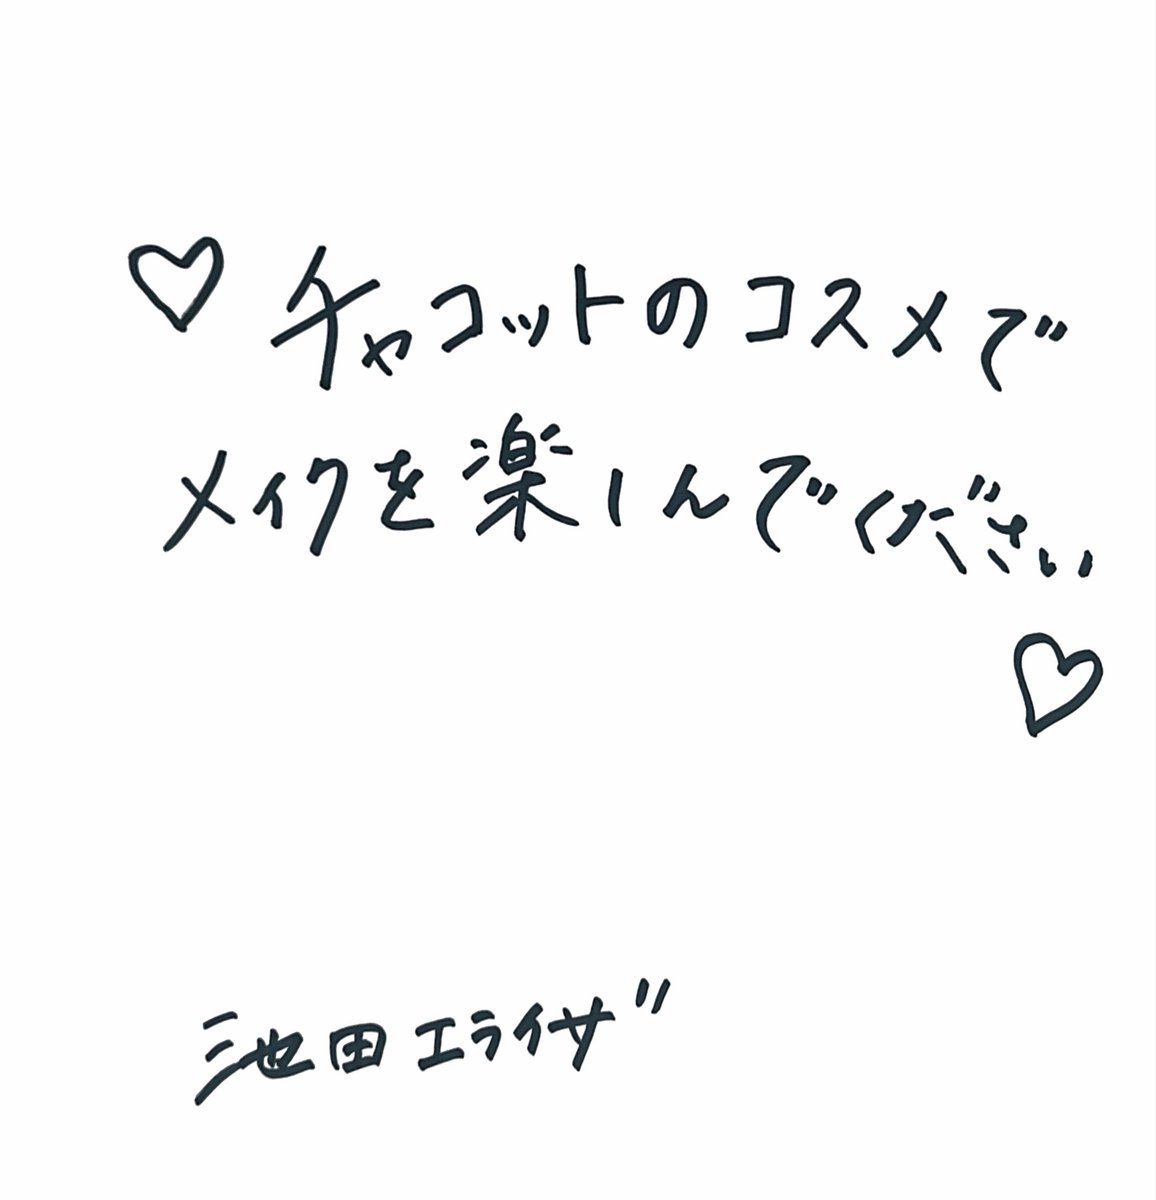 ♡チャコットのコスメで
メイクを楽しんでください
♡
池田エライザ